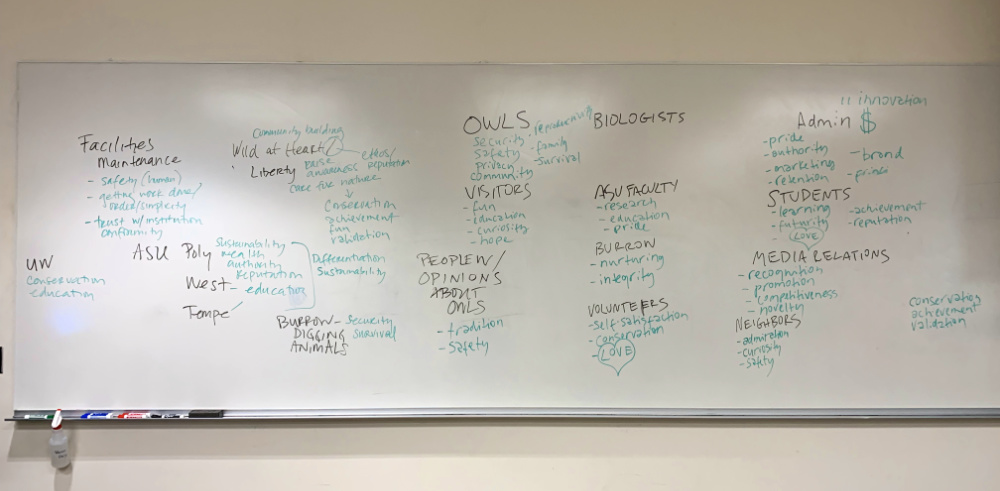 Facilities
Maintenance
- safety (human)
- getting work done/
order/simplicity
- trust w/institution
conformity
Community building
Wild at Heart
Liberty
raise
awareness
effects/
reputation
care five nature
↓
Conservation
achievement
fun
validation
UW
Conservation
education
ASU
Poly
Sustainability
wealth
authority
reputation
West - education
Tempe
Differentiation
Sustainability
BURROW
DIGGING
ANIMALS
- security
survival
OWLS
security
safety
privacy
community
- reproducing
- family
- survival
VISITORS
- fun
- education
- curiosity
- hope
PEOPLE W/
OPINIONS
ABOUT
OWLS
- tradition
- safety
BIOLOGISTS
ASU FACULTY
- research
- education
- pride
BURROW
- nurturing
- integrity
VOLUNTEERS
- self satisfaction
- conservation
- LOVE
11 innovation
Admin $
- pride
- authority
- marketing
- retention
- brand
STUDENTS
- learning
- futurity
LOVE
- achievement
- reputation
MEDIA RELATIONS
- recognition
- promotion
- competitiveness
- novelty
NEIGHBORS
- admiration
- curiosity
- safety
conservation
achievement
validation